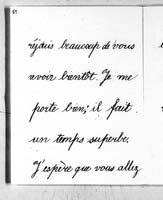 51
réjouis beaucoup de vous
revoir bientôt. Je me
porte bien; il fait
un temps superbe.
J'espère que vous allez